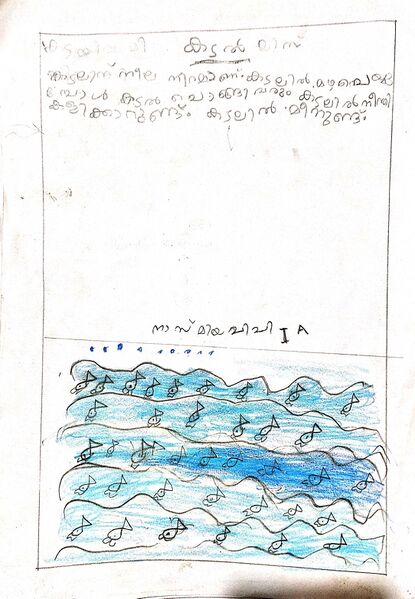 കടൽ
കടലിന് നീല നിറമാണ്. കടലിൽ മഴപെയ്യു
മ്പോൾ കടൽ പൊങ്ങിവരും കടലിൽ നീന്തി
കളിക്കാറുണ്ട്. കടലിൽ മീനുണ്ട്.
നാസ്മിയ ബിബി I A